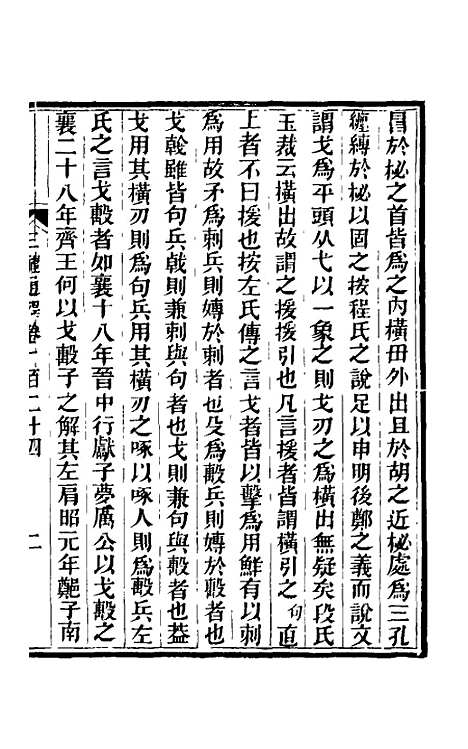 冒於柲之首皆爲之內橫毌外出且於胡之近柲處爲三孔
纏縛於柲以固之按程氏之說足以申明後鄭之義而說文
謂戈爲平頭从弋以一象之則戈刃之爲橫出無疑矣段氏
玉裁云橫出故謂之援援引也凡言援者皆謂橫引之句直
上者不曰援也按左氏傳之言戈者皆以擊爲用鮮有以刺
爲用故矛爲刺兵則專於刺者也殳爲毄兵則專於毄者也
戈戟雖皆句兵戟則兼刺與句者也戈則兼句與毄者也蓋
戈用其橫刃則爲句兵用其橫刃之啄以啄人則爲毄兵左
氏之言戈毄者如襄十八年晉中行獻子夢厲公以戈毄之
襄二十八年齊王何以戈毄子之解其左肩昭元年鄭子南
三禮通釋卷一百二十四 二